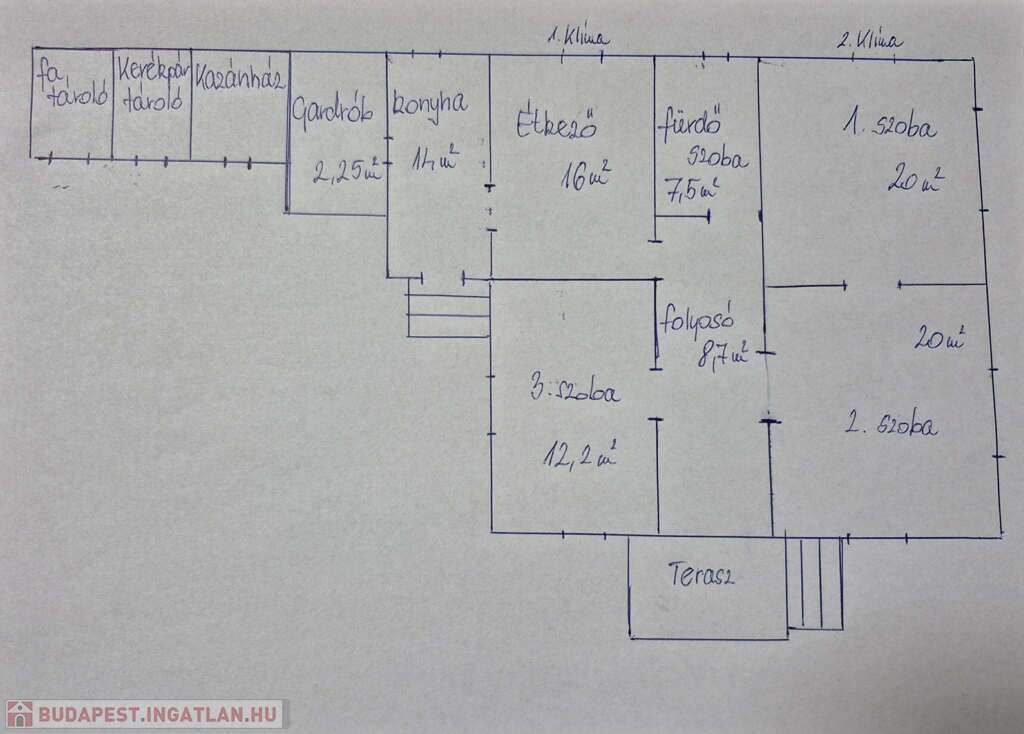 1. Klíma
2. Klíma
fa
tároló
Kerékpár
tároló
Kazánház
Gardrób
2,25 m²
konyha
14 m²
Étkező
16 m²
fürdő
szoba
7,5 m²
1. szoba
20 m²
folyosó
8,7 m²
20 m²
2. szoba
3. szoba
12,2 m²
Terasz
BUDAPEST.INGATLAN.HU